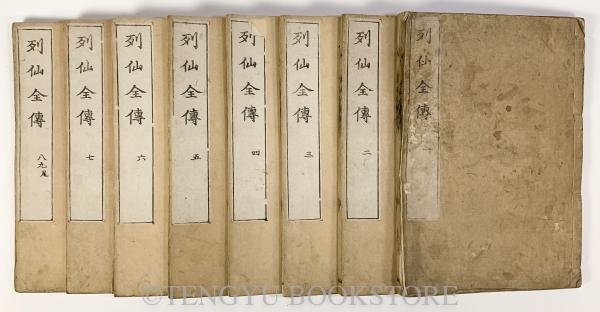 列仙全傳 一
列仙全傳 二
列仙全傳 三
列仙全傳 四
列仙全傳 五
列仙全傳 六
列仙全傳 七
列仙全傳 八九尾
©TENGYU BOOKSTORE